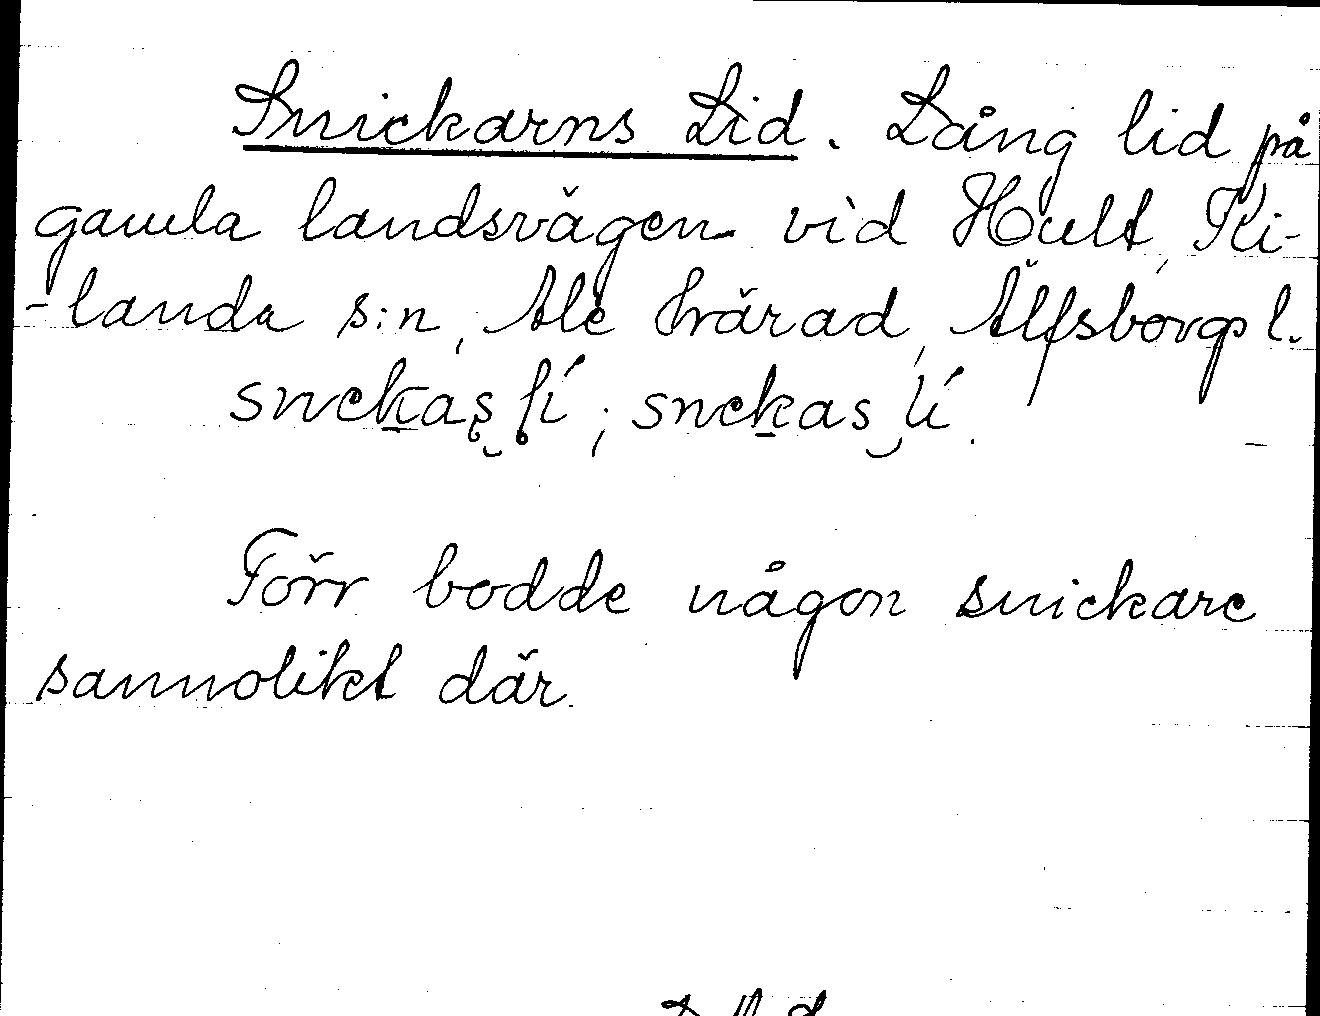 Snickarns Lid. Lång lid på
gamla landsvägen vid Hult, Ki-
-landa s:n, Ale härad, Älfsborgs l.
snekas̥ l̥í; snekas lí.
Förr bodde någon snickare
sannolikt där.